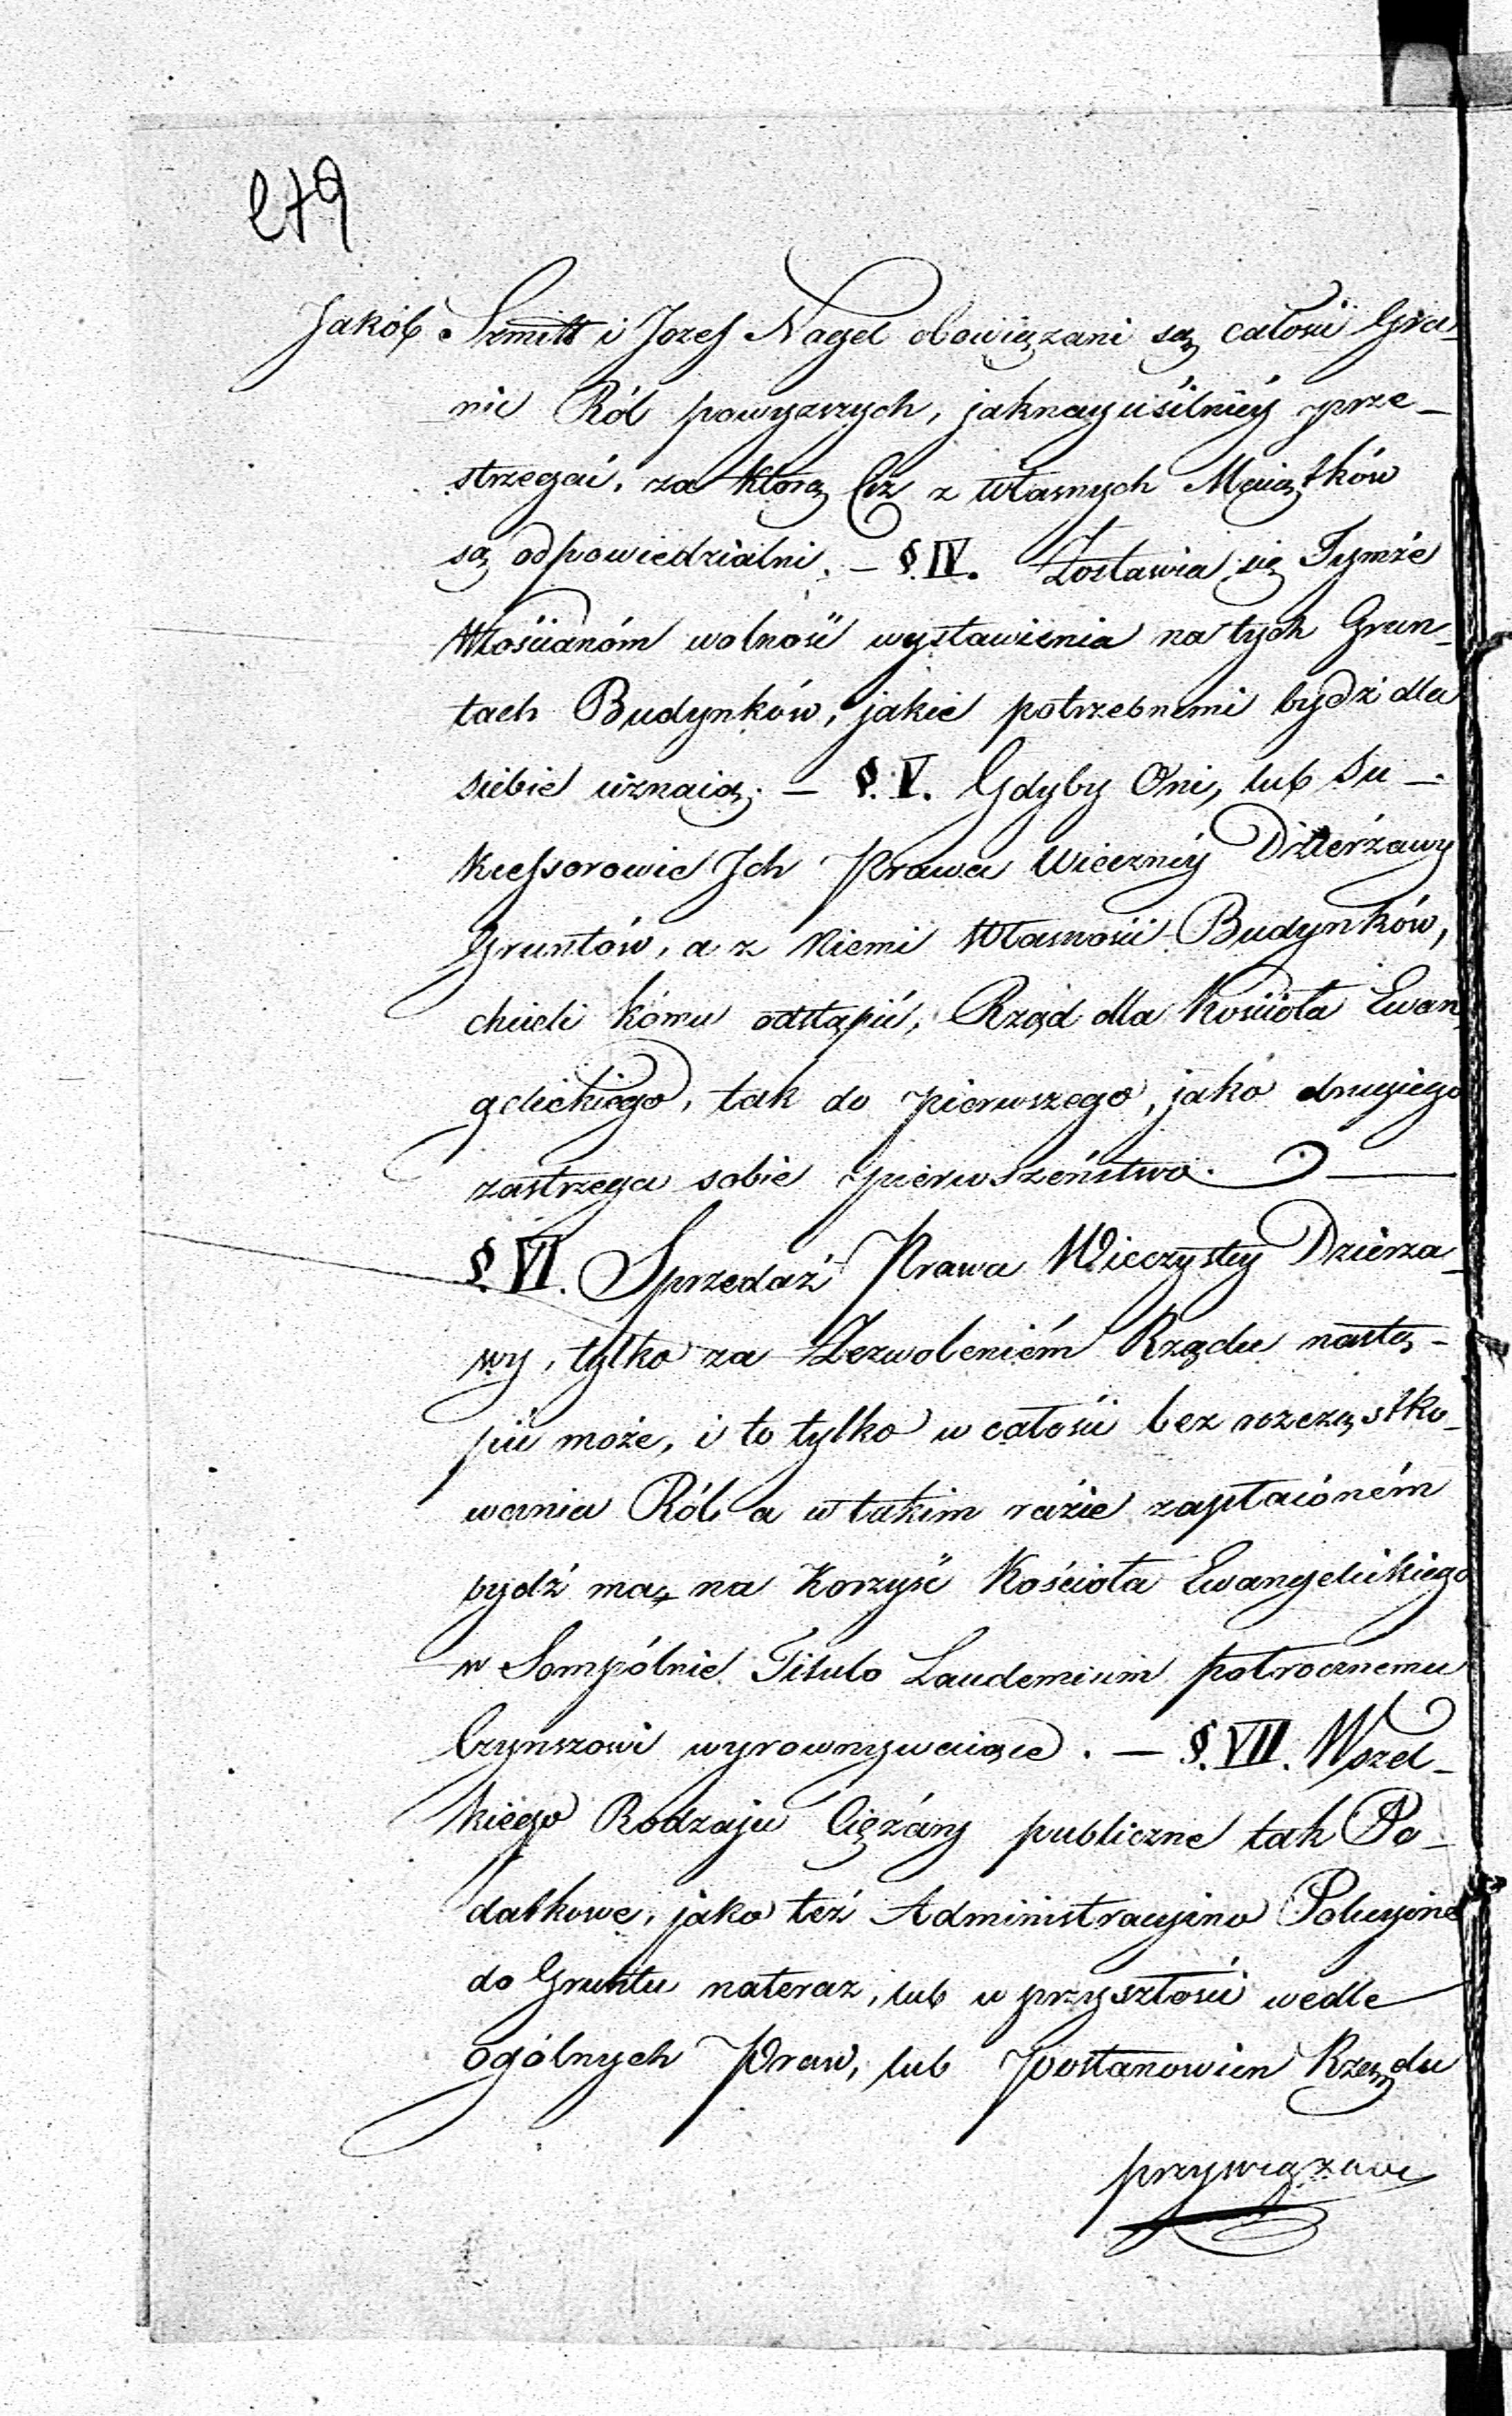 279
Jakób Szmitt i Jozef Nagel obowiązani są całości Gra-
nic Ról powyzszych, jaknayusilniéy prze-
strzegać, za którą też z własnych Maiątków
są odpowiedzialni. — §. IV. Zostawia się Tymże
Włościanóm wolność wystawienia na tych Grun-
tach Budynków, jakie potrzebnemi bydź dla
siebie uznaią. — §. V. Gdyby Oni, lub Su-
kcessorowie Jch Prawa Wieczney Dzierżawy
Gruntów, a z niemi Własności Budynków,
chcieli kómu odstąpić, Rząd dla Kościoła Ewan-
gelickiego, tak do pierwszego, jako drugiego
zastrzega sobie pierwszeństwo. —
§. VI. Sprzedaż Prawa Wieczystey Dzierza-
wy, tylko za Zezwoleniém Rządu nastą-
pić może, i to tylko w całości bez rozcząstko-
wania Ról, a w takim razie zapłaconém
bydź ma, na korzyść Kościoła Ewangelickiego
w Sompólnie Titulo Laudemium półrocznemu
Czynszowi wyrownywaiące. — §. VII. Wszel-
kiego Rodzaju Ciężary publiczne tak Po-
datkowe, jako też Administracyino Policyine
do Gruntu nateraz, lub w przyszłości wedle
ogólnych Praw, lub Postanowien Rządu
przywiązane